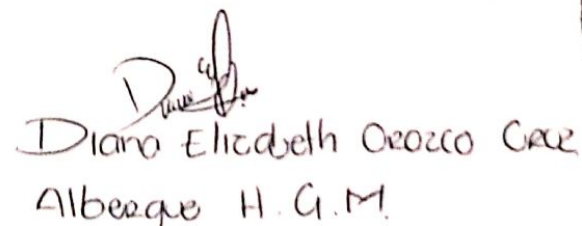 Diana Elizabeth Orozco Cruz
Albergue H.G.M.